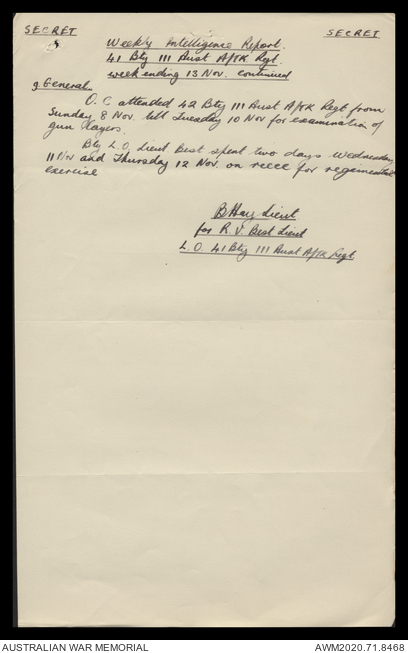 SECRET SECRET
Weekly Intelligence Report.
41 Bty 111 Aust A/TK Regt.
week ending 13 Nov. continued
9 General.
O.C. attended 42 Bty 111 Aust A/TK Regt from
Sunday 8 Nov. till Tuesday 10 Nov for examination of
gun layers.
Bty L.O. Lieut Best spent two days Wednesday
11 Nov and Thursday 12 Nov. on recce for regimental
exercise
B Hay Lieut
for R.V. Best Lieut
L.O. 41 Bty 111 Aust A/TK Regt
AUSTRALIAN WAR MEMORIAL AWM2020.71.8468